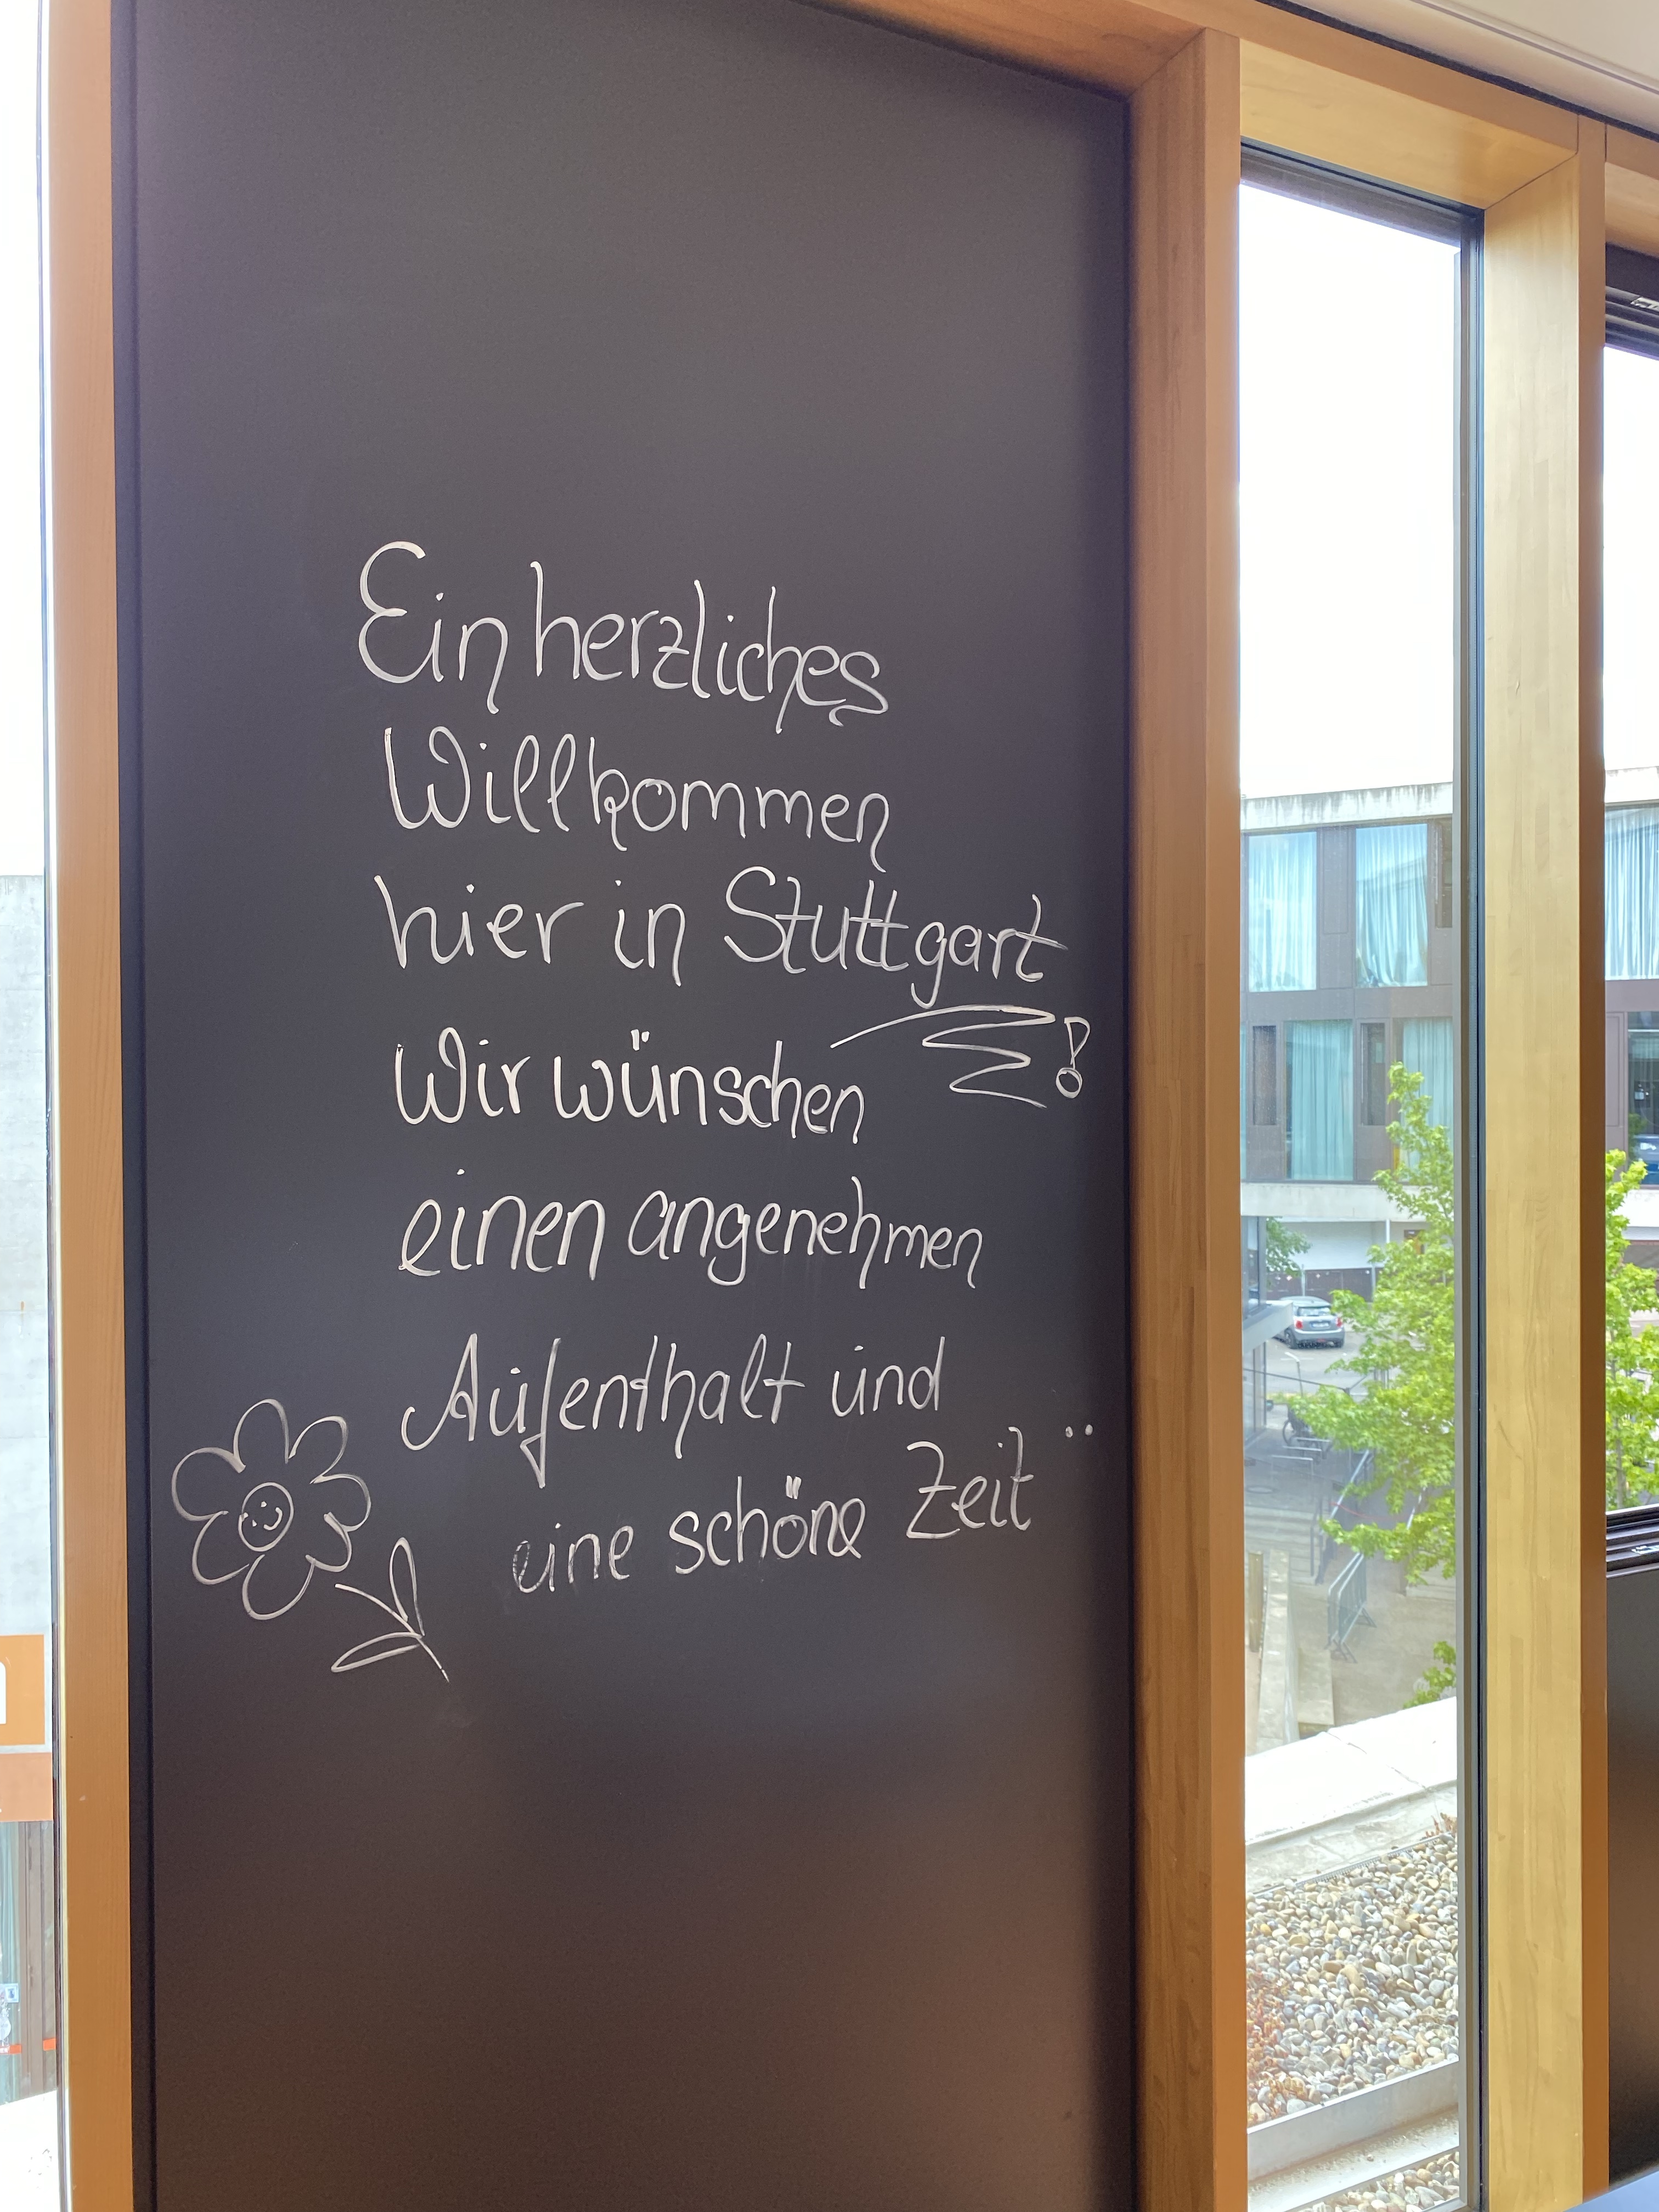 Ein herzliches
Willkommen
hier in Stuttgart!
Wir wünschen
einen angenehmen
Aufenthalt und
eine schöne Zeit